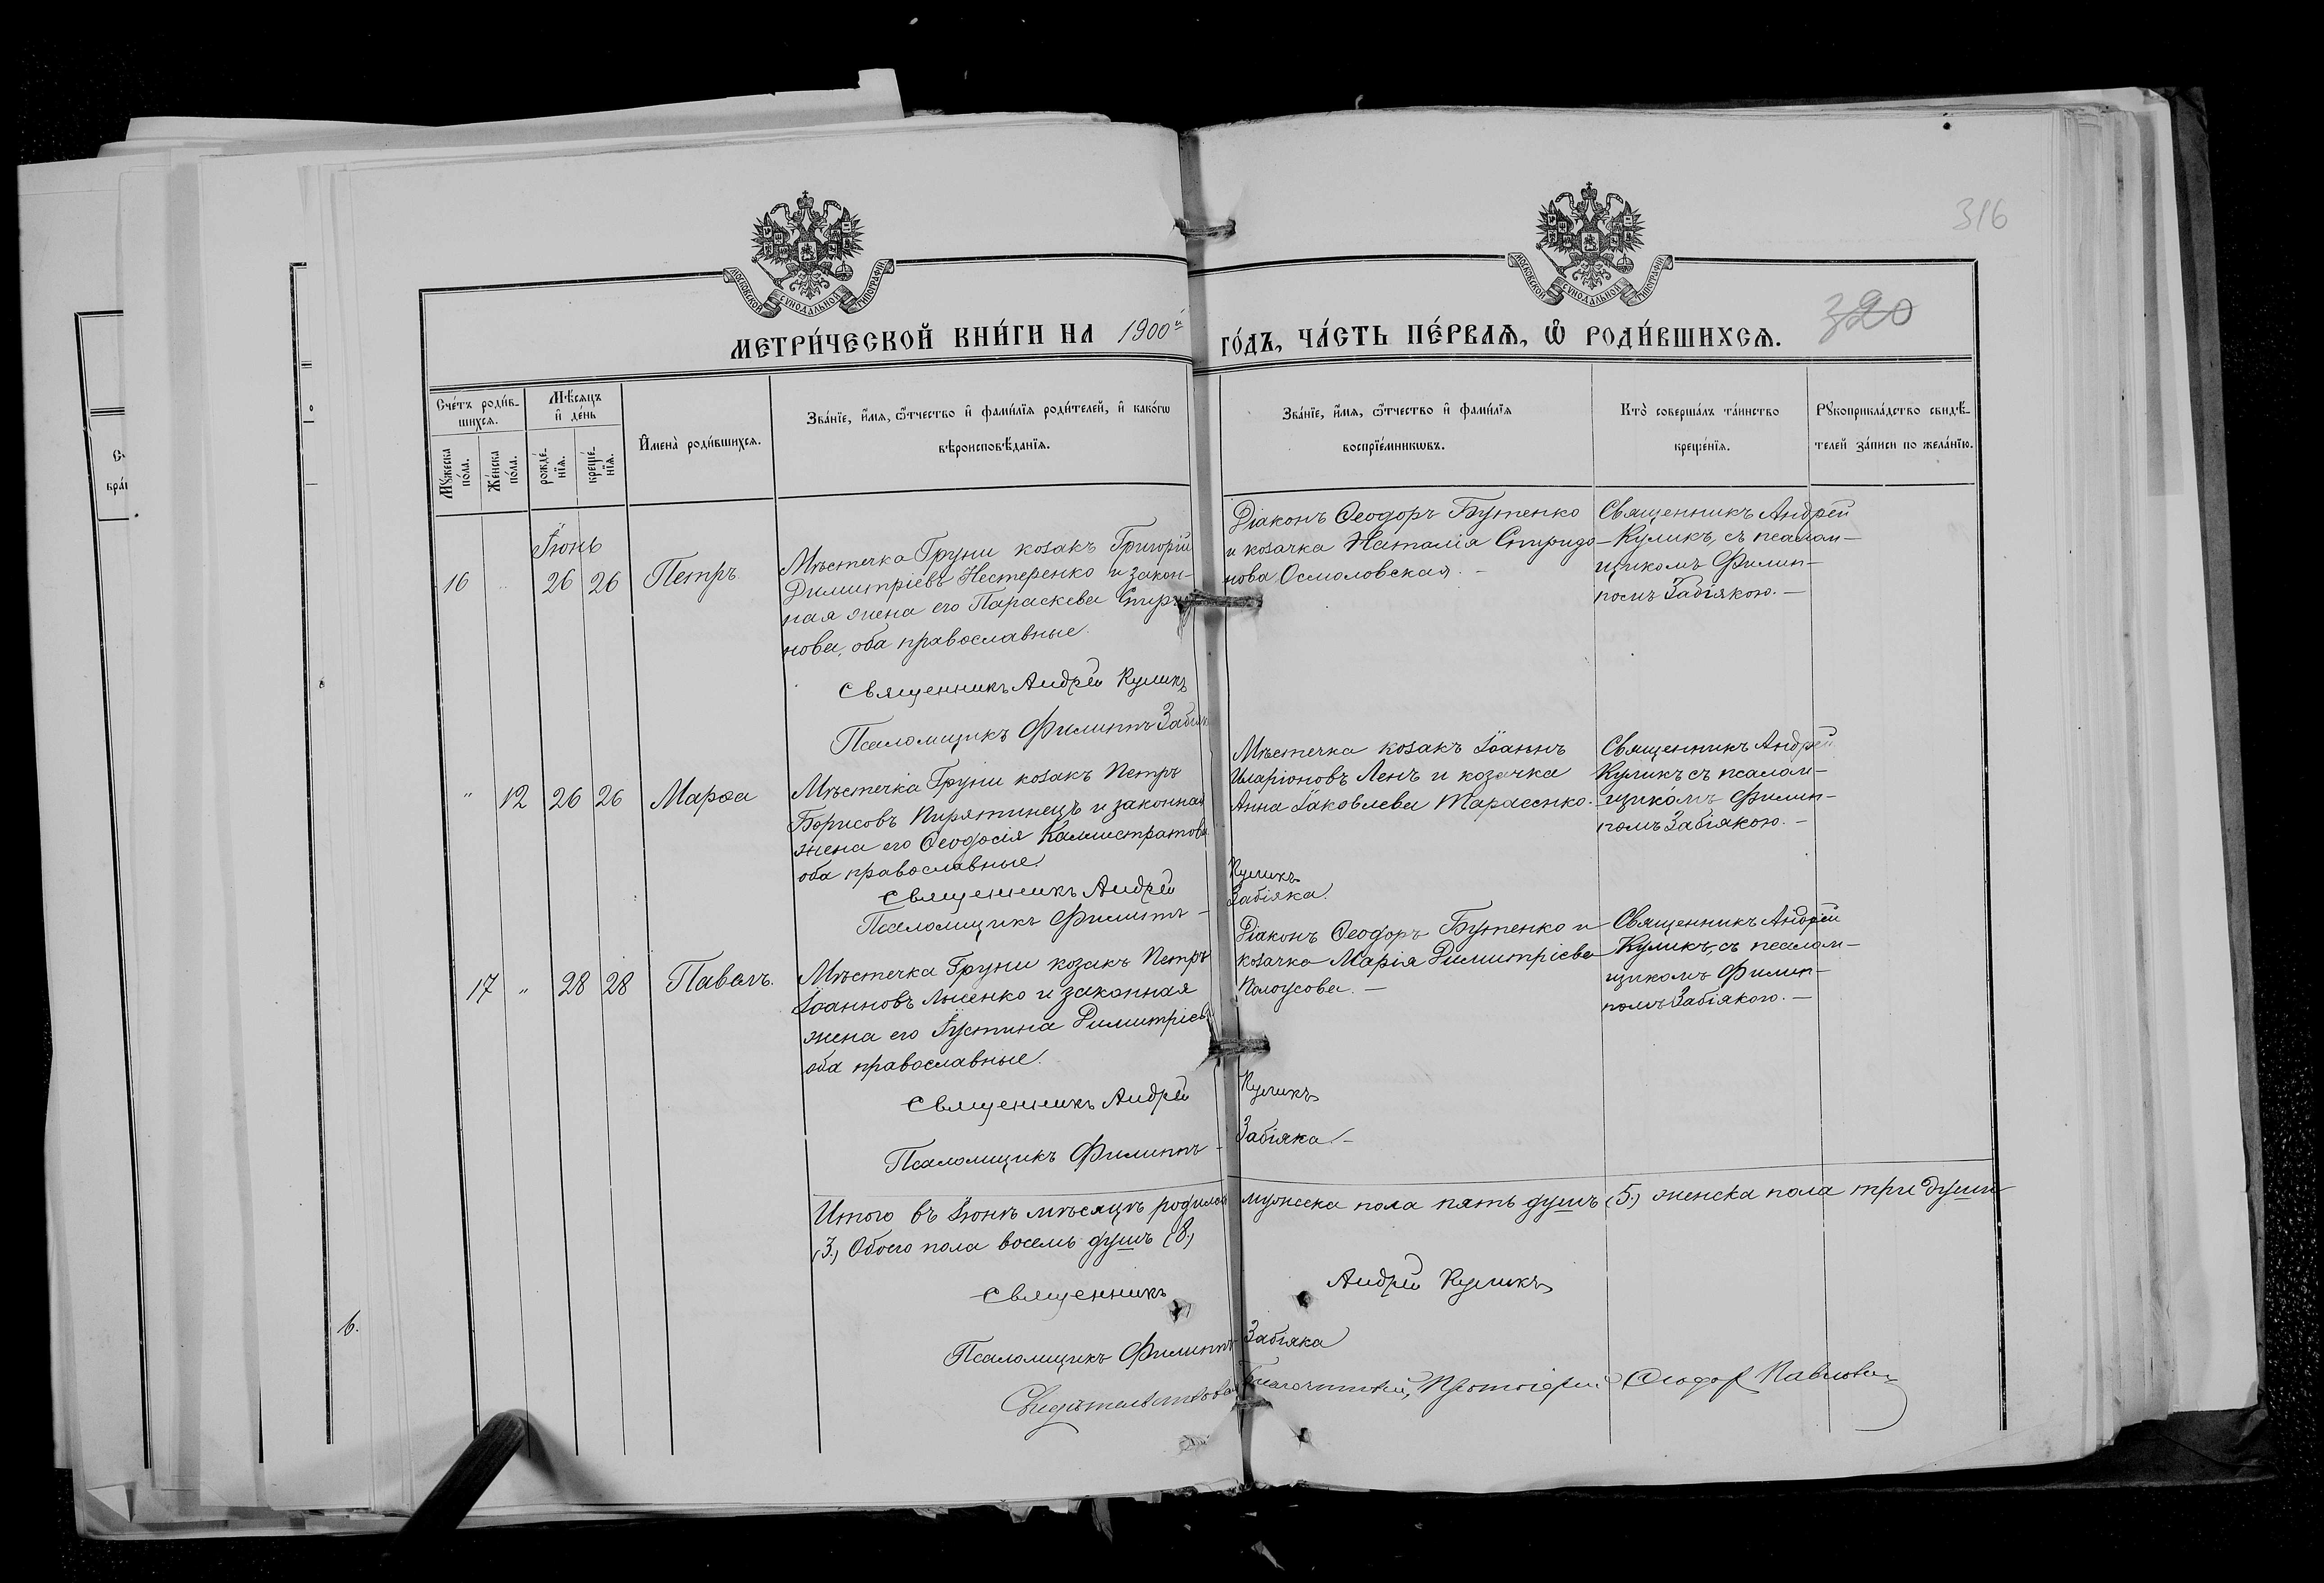 316
МОСКОВСКОЙ СѴНОДАЛЬНОЙ ТИПОГРАФІИ
МОСКОВСКОЙ СѴНОДАЛЬНОЙ ТИПОГРАФІИ
320
МЕТРИ́ЧЕСКОЙ КНИ́ГИ НА 1900й ГО́ДЪ, ЧА́СТЬ ПЕ́РВАѦ, Ѡ РОДИ́ВШИХСѦ.
Сче́тъ роди́в-
шихсѧ.
Мꙋжеска по́ла.
Же́нска по́ла.
Мѣ́сѧцъ
и де́нь
рожде́-
нїѧ.
креще́-
нїѧ.
Имена̀ роди́вшихсѧ.
Зва́нїе, и́мѧ, ѻ҆́тчество и фами́лїѧ роди́телей, и како́гѡ
вѣроисповѣ́данїѧ.
Зва́нїе, и́мѧ, ѻ҆́тчество и фами́лїѧ
воспрїе́мникѡвъ.
Кто̀ соверша́лъ та́инство
креще́нїѧ.
Рꙋкоприкла́дство свидѣ́-
телей за́писи по жела́нїю.
Іюнь
16
26 26
Петръ
Мѣстечка Груни козакъ Григорій
Димитріевъ Нестеренко и закон-
ная жена его Параскева
нова, оба православные.
Священникъ Андрей Куликъ
Псаломщикъ Филиппъ
Діаконъ Ѳеодоръ Бутенко
и козачка Наталія Спиридо-
нова Осмоловская. -
Священникъ Андрей
Куликъ, съ псалом-
щикомъ Филип-
помъ Забіякою. -
" 12 26 26
Марѳа
Мѣстечка Груни козакъ Петръ
Борисовъ Пирятинецъ и законная
жена его Ѳеодосія Каллистратова
оба православные.
Священникъ Андрей Куликъ
Псаломщикъ Филиппъ - Забіяка.
Мѣстечка козакъ Іоаннъ
Иларіоновъ Ленъ и козачка
Анна Іаковлева Тарасенко.
Священникъ Андрей
Куликъ съ псалом-
щикомъ Филип-
помъ Забіякою. -
17 " 28 28
Павелъ.
Мѣстечка Груни козакъ Петръ
Іоанновъ Лысенко и законная
жена его Іустина
оба православные.
Священникъ Андрей Куликъ
Псаломщикъ Филиппъ - Забіяка. -
Діаконъ Ѳеодоръ Бутенко и
козачка Марія Димитріева
. -
Священникъ Андрей
Куликъ, съ псалом-
щикомъ Филип-
помъ Забіякою. -
Итого въ Іюнѣ мѣсяцѣ родилось мужеска пола пять душъ (5.) женска пола три души
(3.) Обоего пола восемь душъ (8.)
Священникъ Андрей Куликъ
Псаломщикъ Филиппъ Забіяка
Благочинный, Протоіерей Ѳеодоръ
б.